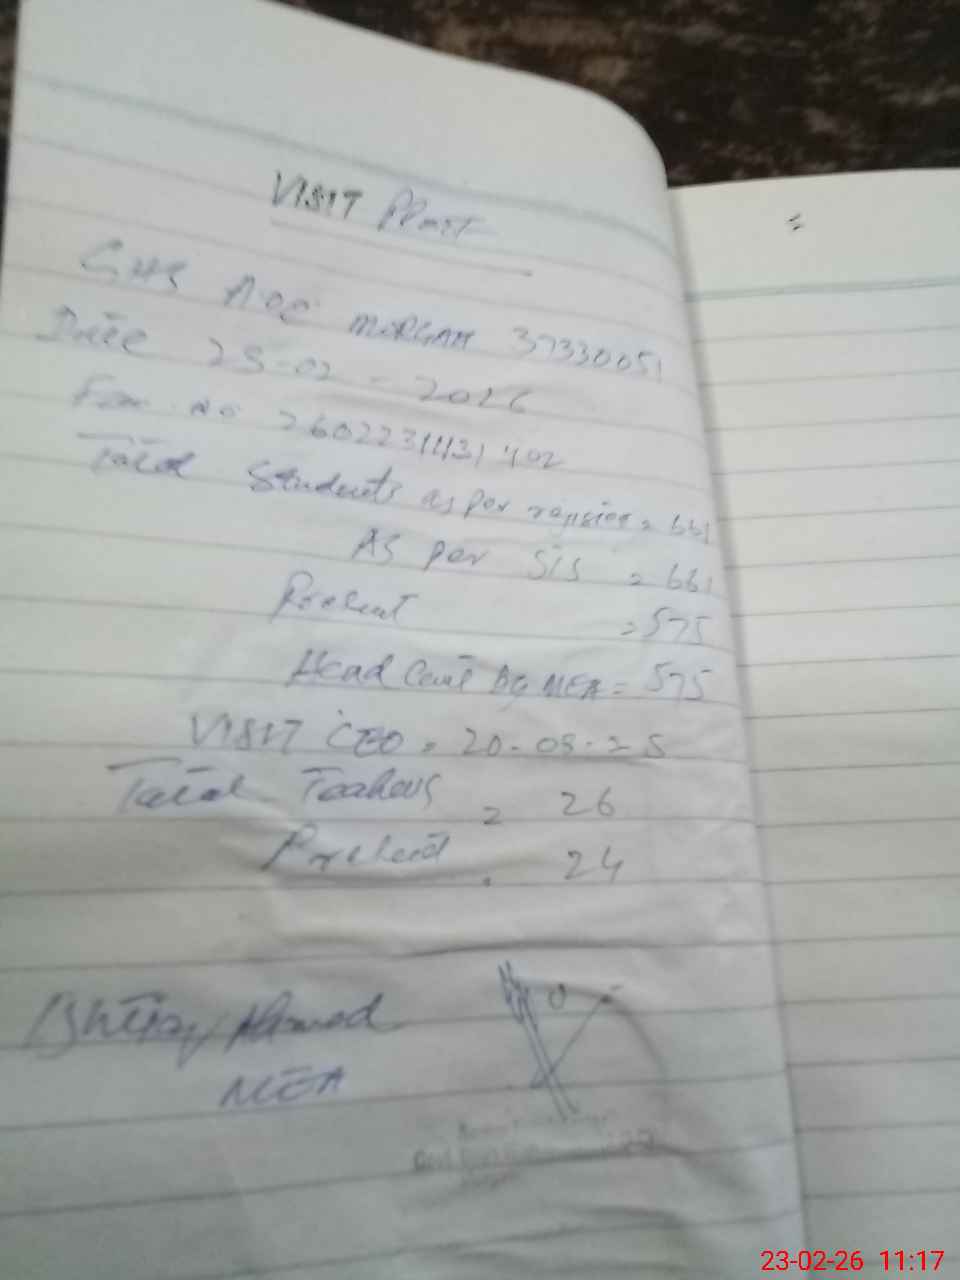 VISIT
GHS AOC MORGAH 37330051
Date 23-02-2026
Form No 2602231131402
Total Students as per register = 661
As per SIS = 661
Present = 575
Head Count By MEA = 575
VISIT CEO = 20-08-25
Total Teachers = 26
Present = 24
Ishtiaq Ahmad
MEA
23-02-26 11:17